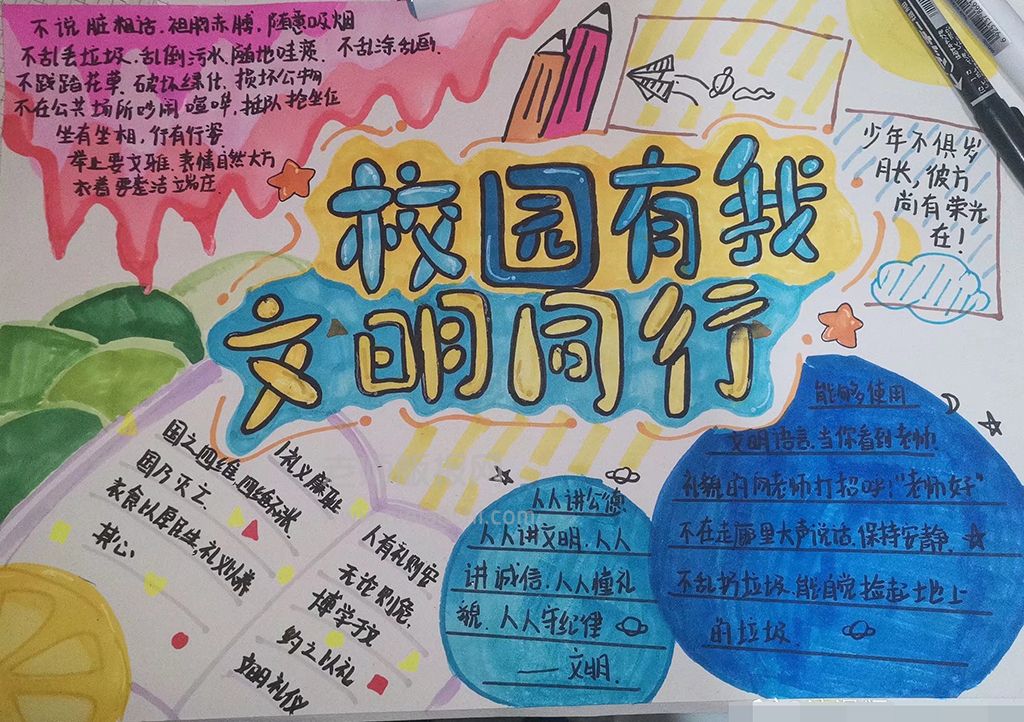 不说脏粗话.袒胸赤膊,随意吸烟
不乱丢垃圾.乱倒污水.随地哇痰.不乱涂乱画.
不践踏花草.破坏绿化.损坏公物
不在公共场所吵闹喧哗,排队抢坐位
坐有坐相,行有行姿
举止要文雅.表情自然大方
衣着要整洁立端庄.
少年不惧岁
月长,彼方
尚有荣光
在!
校园有我
文明同行
1礼义廉耻
国之四维,四维不张.
国乃灭亡.
衣食以厚民生,礼义以养
其心
人有礼则安
无论则危.
博学于文
约之以礼
文明礼仪
人人讲公德
人人讲文明.人人
讲诚信.人人懂礼
貌.人人乐纪律
——文明.
能够使用
文明语言.当你看到老师
礼貌的向老师打招呼:"老师好"
不在走廊里大声说话.保持安静.
不乱扔垃圾.能自觉捡起土地上
的垃圾